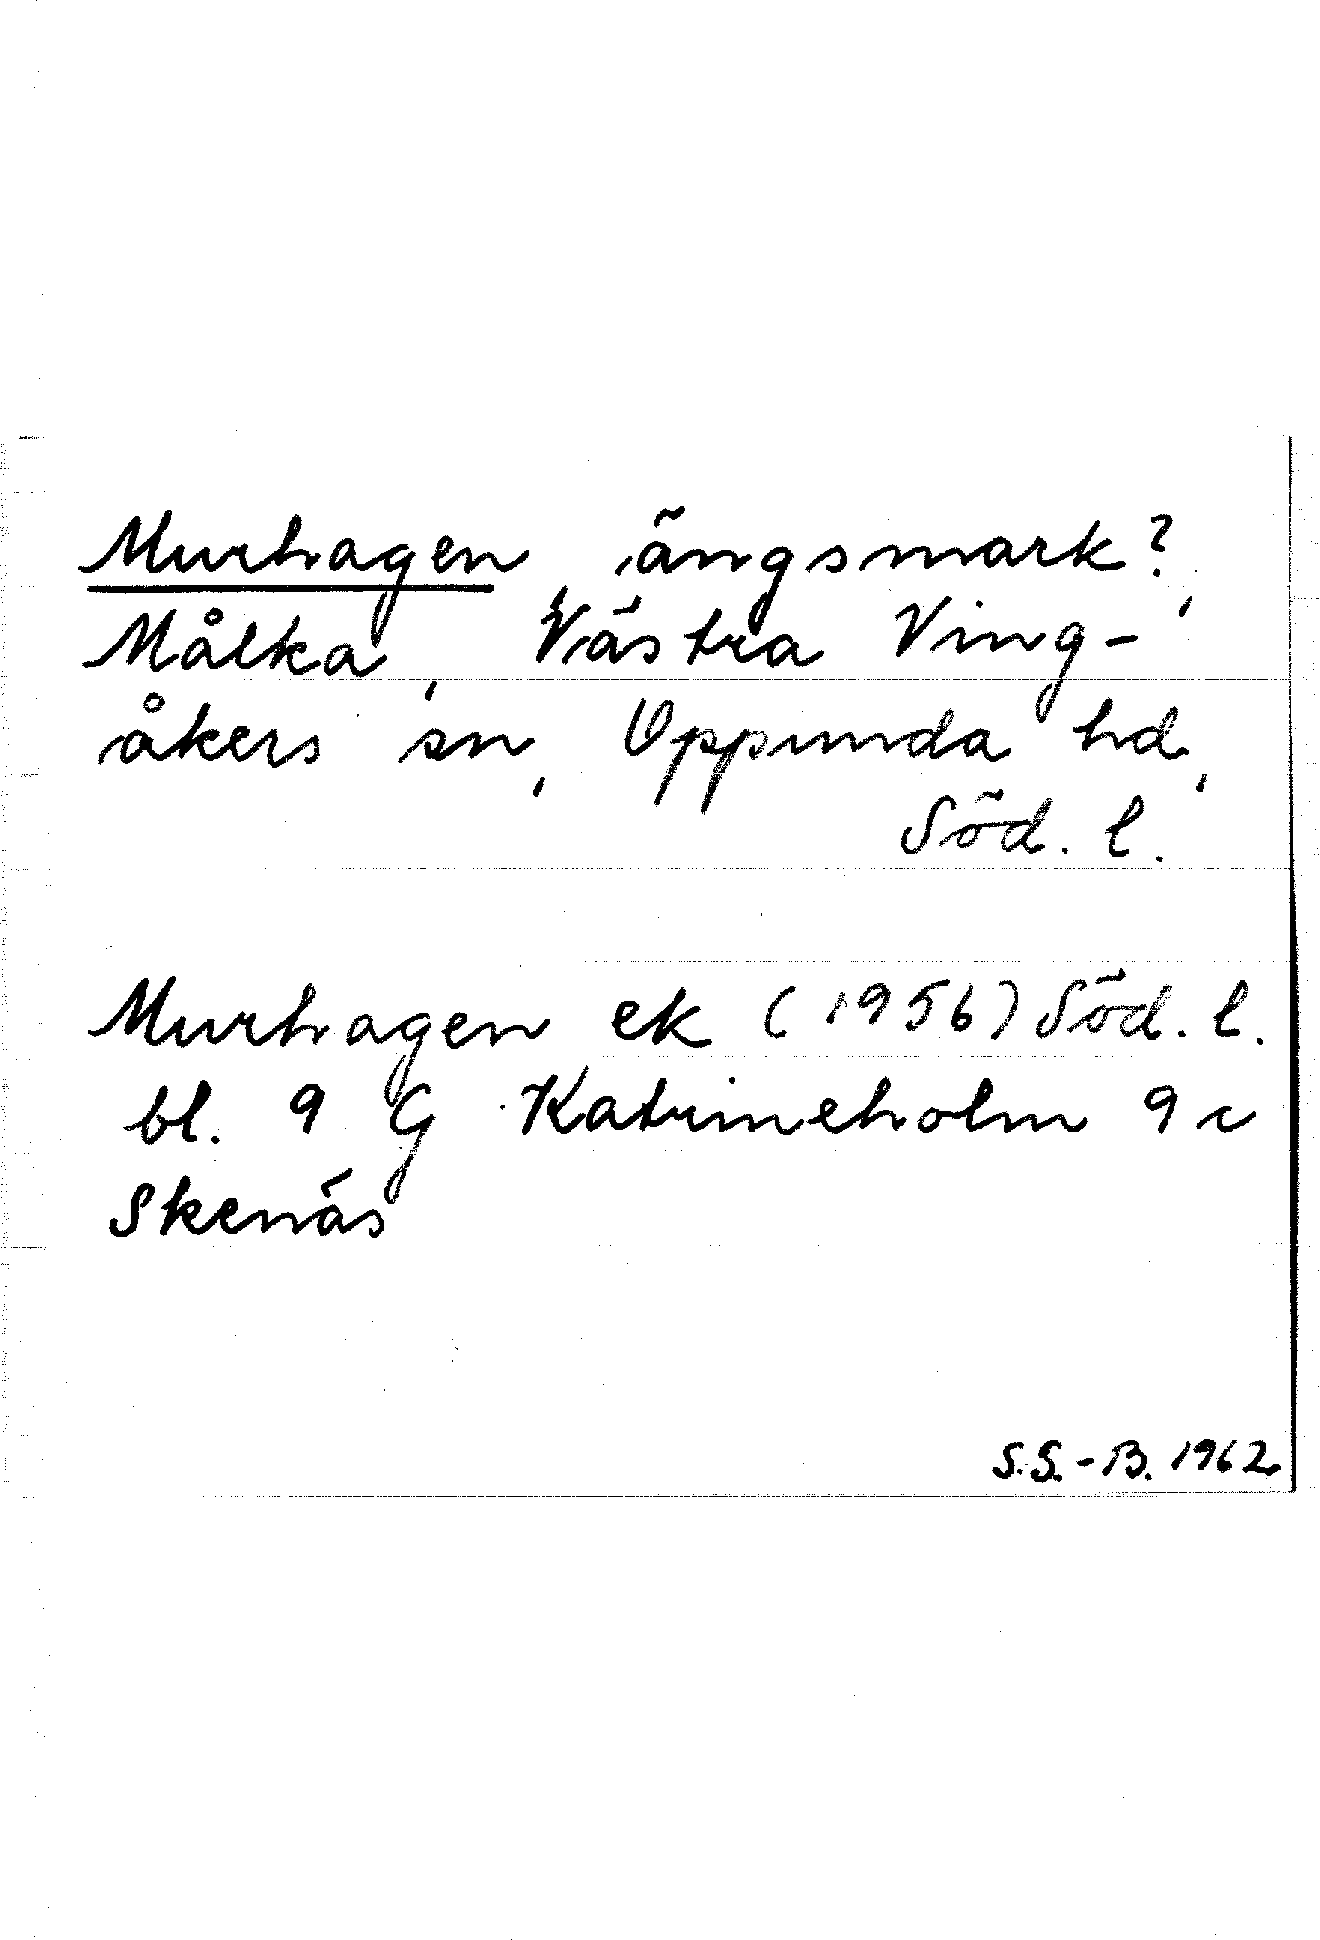 Murhagen, ängsmark?,
Målka, Västra Ving-
åkers sn, Oppunda hd,
Söd. l.
Murhagen ek (1956) Söd. l.
bl. 9 G Katrineholm 9 c
Skenäs
S.S.-B. 1962